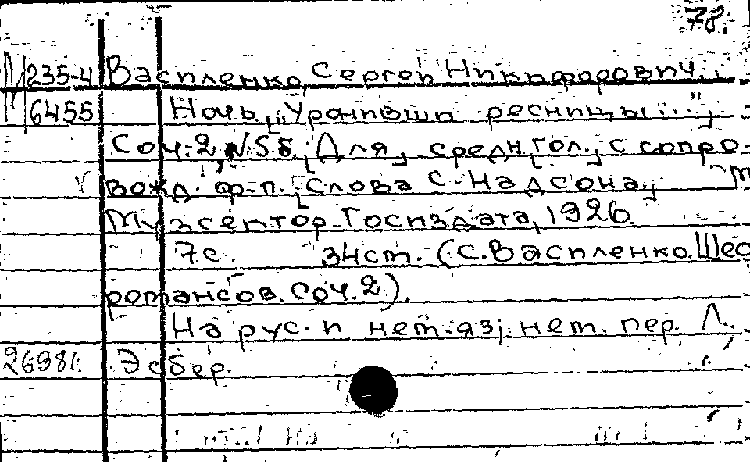 78.
М 235-4 Василенко, Сергей Никифорович.
6455 Ночь „Уронивши ресницы...",
Соч. 2, №5. [Для] средн. гол. с сопро-
вожд. ф-п. [Слова С. Надсона.] М
Музсектор Госиздата, 1926
7с. 34 см. (С. Василенко. Шес
романсов. Соч. 2).
На рус. и нем. яз; нем. пер. Л.
26981. Эсбер.